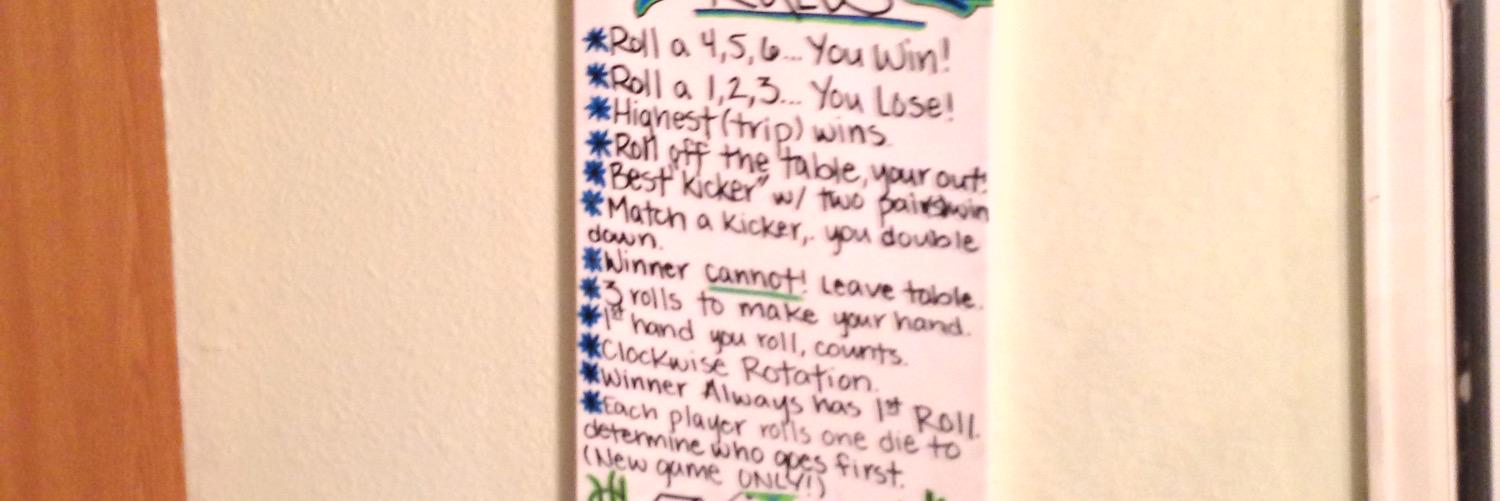 *Roll a 4,5,6... You Win!
*Roll a 1,2,3... You Lose!
*Highest (trip) wins
*Roll off the table, your out!
*Best "kicker" w/ two pairs win
*Match a kicker,. you double
down.
*Winner cannot! Leave table.
*3 rolls to make your hand.
*1st hand you roll, counts.
*Clockwise Rotation.
*Winner Always has 1st Roll.
*Each player rolls one die to
determine who goes first.
(New game ONLY!)